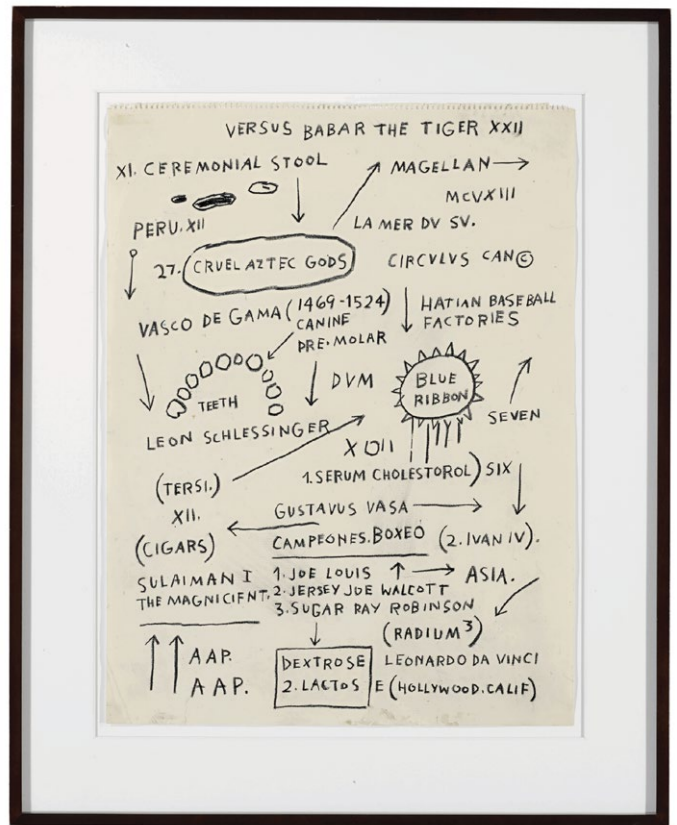 VERSUS BABAR THE TIGER XXII
XI. CEREMONIAL STOOL
MAGELLAN
MCVXIII
PERU. XII
LA MER DV SV.
27. CRUEL AZTEC GODS
CIRCVLVS CAN©
VASCO DE GAMA (1469-1524)
CANINE
PRE. MOLAR
HATIAN BASEBALL
FACTORIES
TEETH
DVM
BLUE
RIBBON
SEVEN
LEON SCHLESSINGER
1. SERUM CHOLESTOROL) SIX
(TERSI.)
XII.
(CIGARS)
GUSTAVUS VASA
CAMPEONES. BOXEO
(2. IVAN IV).
SULAIMAN I
THE MAGNICIENT.
1. JOE LOUIS
2. JERSEY JOE WALCOTT
3. SUGAR RAY ROBINSON
ASIA.
(RADIUM³)
AAP.
AAP.
DEXTROSE
2. LACTOSE
LEONARDO DA VINCI
(HOLLYWOOD. CALIF)